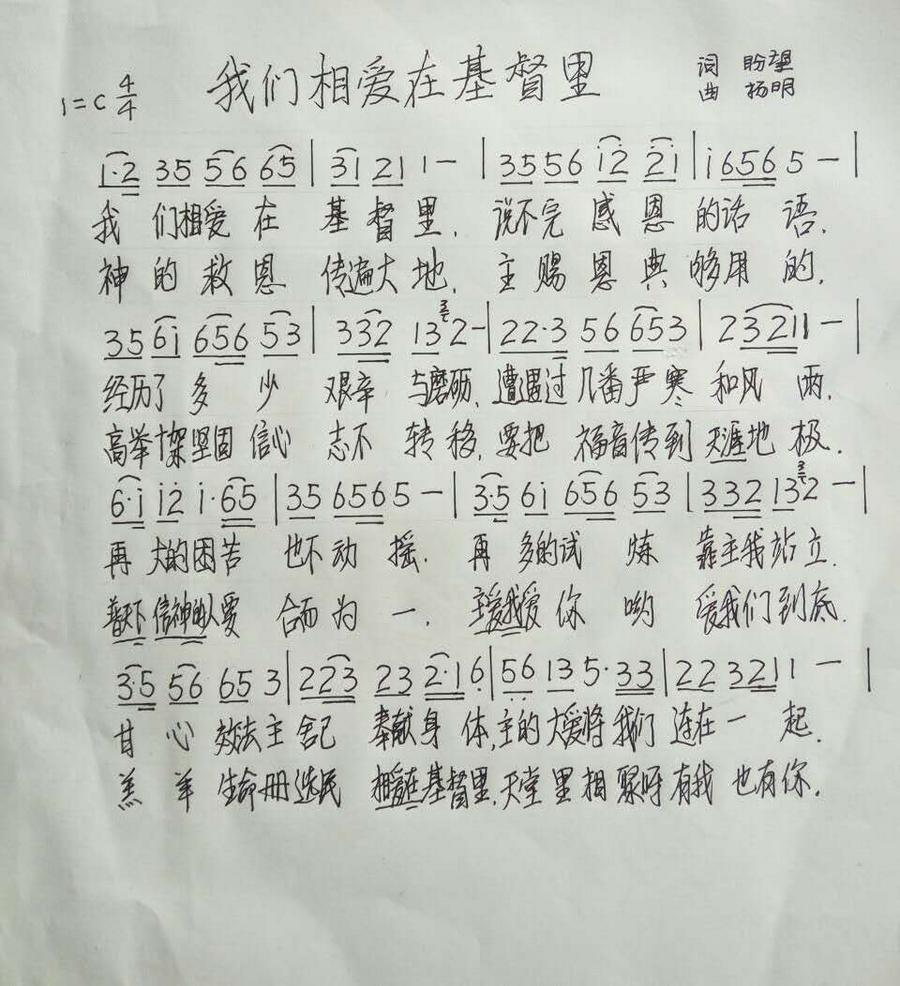 我们相爱在基督里
词 盼望
1=C 4/4
曲 扬明
1·2 35 56 65 | 31 21 1— | 3556 12 21 | 1656 5 — |
我 们相爱 在 基 督 里. 说不完 感 恩 的话 语.
神 的 救 恩 传遍大 地. 主 赐 恩 典 够用 的.
35 61 656 53 | 332 13 2— | 22·3 56 653 | 23211 — |
经历了 多 少 艰辛 与磨砺. 遭遇过 几番严寒 和风 雨.
高举十架坚固 信心 志不 转移. 要把 福音传到 天涯地 极.
6·1 12 1·65 | 35 656 5 — | 3·5 61 656 53 | 332 132 — |
再 大的困苦 也不动 摇. 再 多的试 炼 靠主我站立.
普天下 信神的人要 合而为 一. 主爱我爱 你 哟 爱我们到底.
3·5 56 65 3 | 223 23 2·16 | 56 13 5·33 | 22 3211 — |
甘 心 效法主 舍己 奉献身 体, 主的大爱将我们 连在一 起.
羔 羊 生命册选民 相爱在基督里, 天堂里相聚呀有我 也有你.